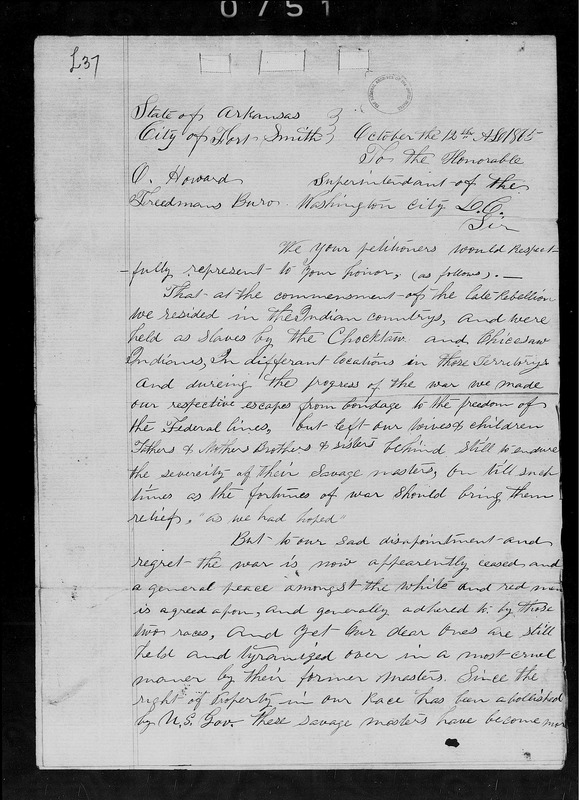 0751
L37
State of Arkansas
City of Fort Smith October the 12th AD 1865
To the Honorable
O. Howard Superintendant of the
Freedmans Buro. Washington City D.C.
Sir
We your petitioners would Respect-
fully represent to your honor, (as follows). —
That at the commensment of he late Rebellion
we resided in the Indian countrys, and were
held as slaves by the Chocktaw and Chicasaw
Indians, In differant locations in those Territorys
And dureing the progress of the war we made
our respective escapes from bondage to the freedom of
the Federal lines, but left our wives & children
Fathers & Mothers Brothers & sisters behind still to endure
the severeity of their savage masters, on till such
times as the fortunes of war should bring them
relief, "as we had hoped"
But to our sad disapointment and
regret the war is now apperently ceased and
a general peace amongst the white and red men
is agreed apon, and generally adhered to by those
two races, And yet Our dear Ones are still
held and tyranized over in a most cruel
maner by their former masters. Since the
right of property in our Race has been abolished
by U.S. Gov. these savage masters have become more